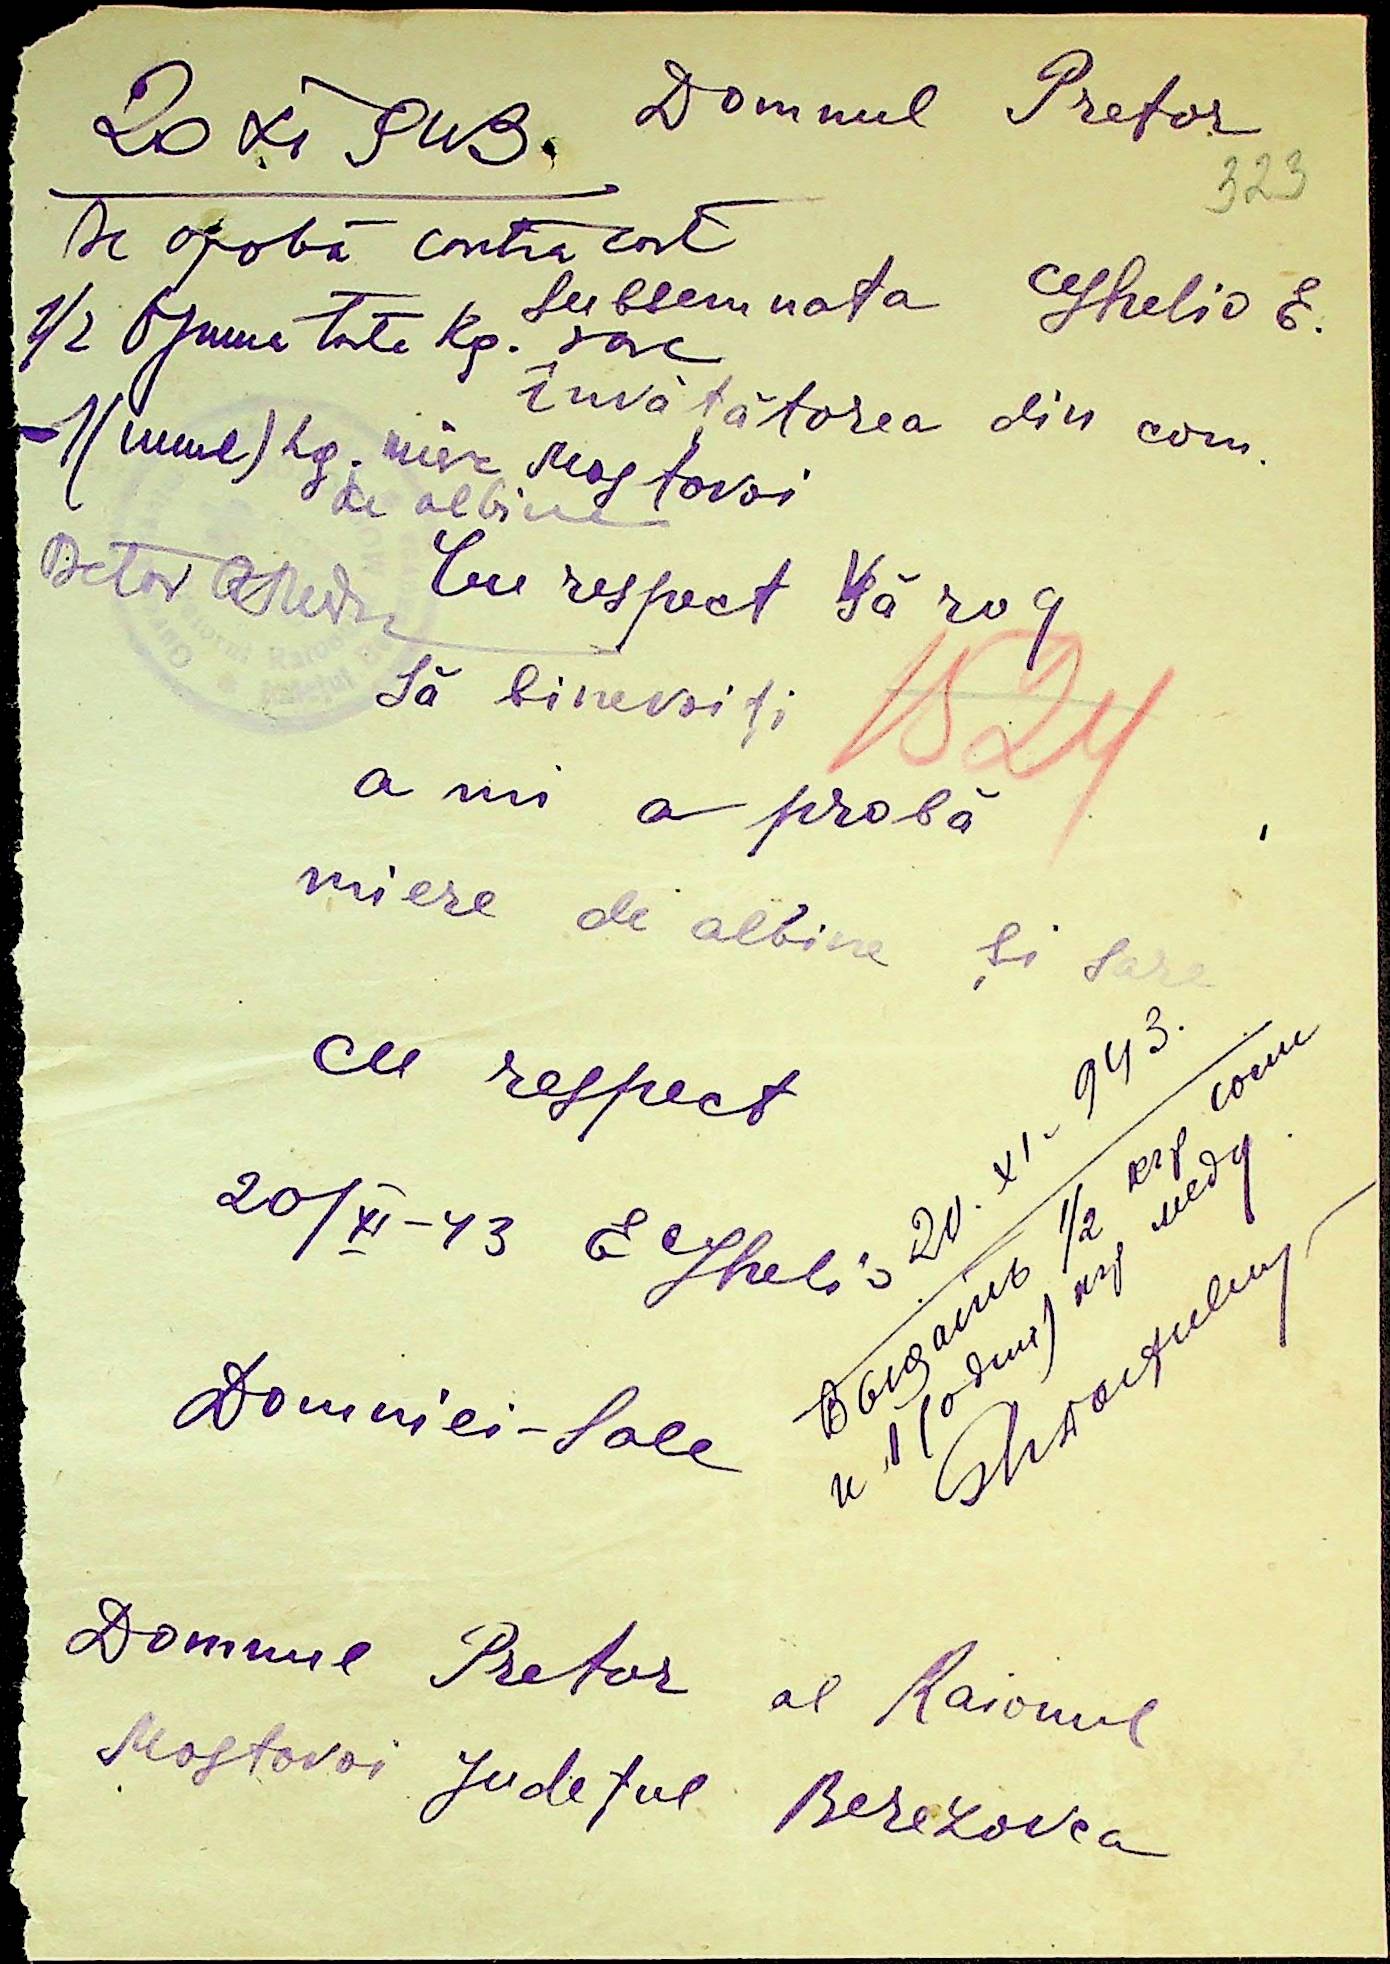 Domnul Pretor
323
20 XI 943.
Se apobă contra cost
1/2 (jumătate kg. sare
1 (unul) kg. miere
de albine
Pretor
Subsemnata Eghelis E.
învățătorea din com.
Mostovoi
Cu respect Vă rog
Să binevoiți
a mi a probă
miere de albine și sare
1524
cu respect
20/XI-43 E Eghelis
20. XI. 943.
Выдать 1/2 кгр соли
и 1 (один) кгр меду.
Domniei-Sale
Domnul Pretor al Raionul
Mostovoi Județul Berezovca